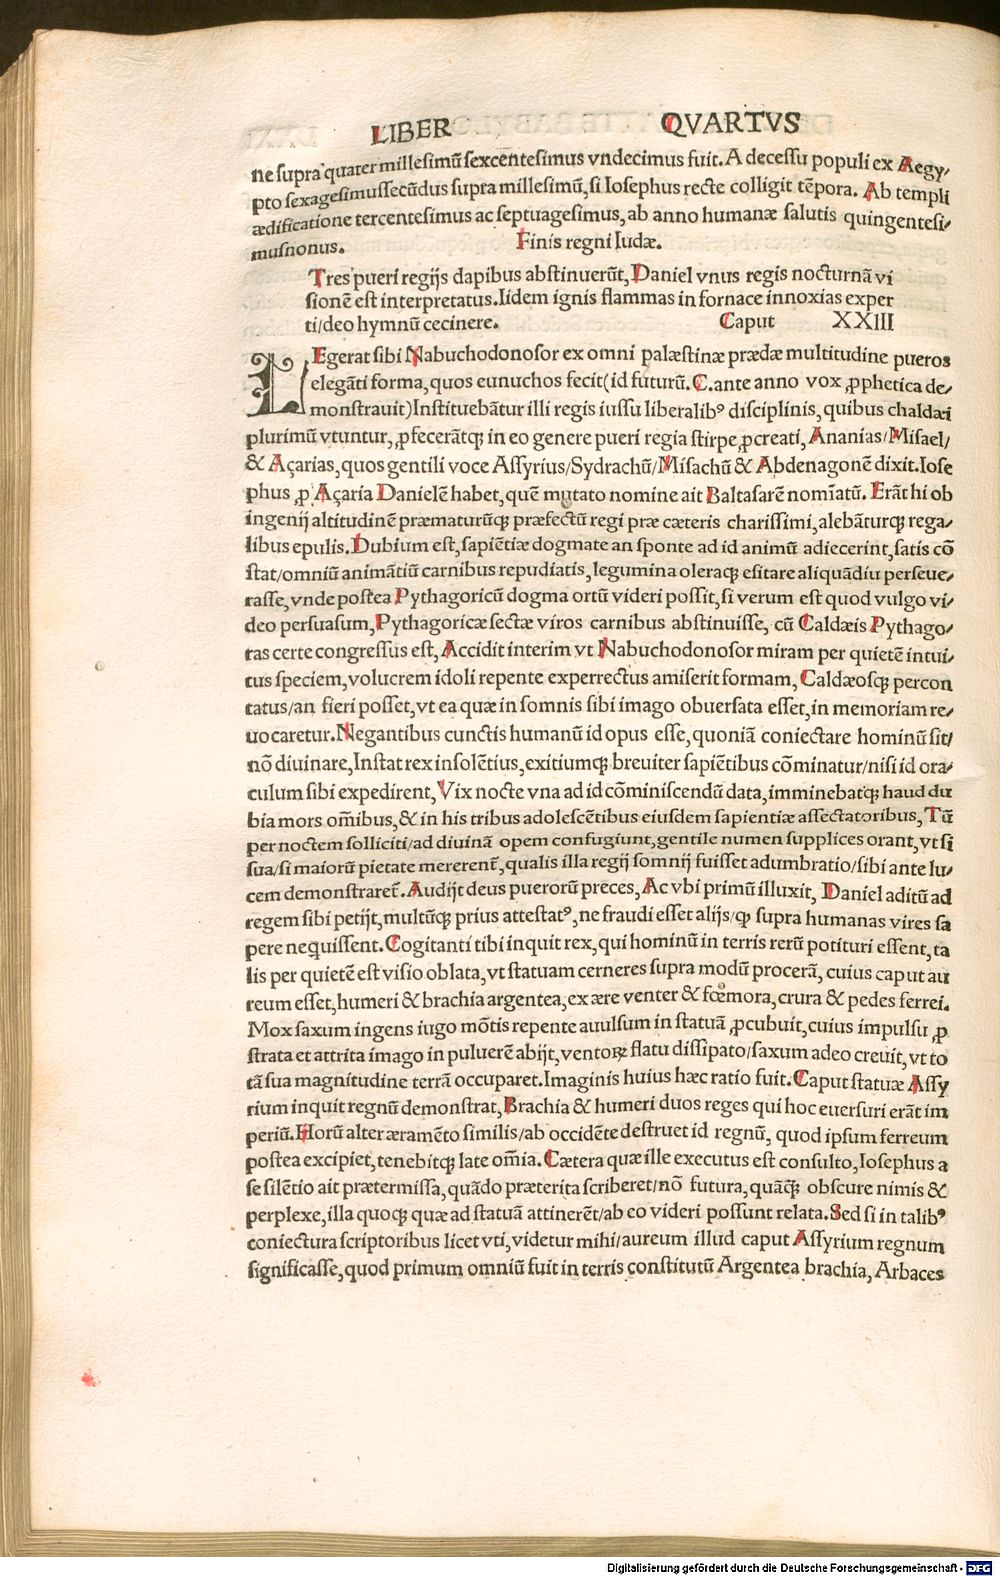 LIBER QVARTVS
ne supra quater millesimũ sexcentesimus vndecimus fuit. A decessu populi ex Aegy/
pto sexagesimussecũdus supra millesimũ, si Iosephus recte colligit tẽpora. Ab templi
ædificatione tercentesimus ac septuagesimus, ab anno humanæ salutis quingentesi/
musnonus. Finis regni Iudæ.
Tres pueri regijs dapibus abstinuerũt, Daniel vnus regis nocturnã vi
sionẽ est interpretatus. Iidem ignis flammas in fornace innoxias exper
ti/deo hymnũ cecinere. Caput XXIII
LEgerat sibi Nabuchodonosor ex omni palæstinæ prædæ multitudine pueros
elegãti forma, quos eunuchos fecit(id futurũ. C. ante anno vox ꝓphetica de/
monstrauit)Instituebãtur illi regis iussu liberalibꝰ disciplinis, quibus chaldæi
plurimũ vtuntur, ꝓfecerãtqꝫ in eo genere pueri regia stirpe ꝓcreati, Ananias/Misael/
& Açarias, quos gentili voce Assyrius/Sydrachũ/Misachũ & Abdenagonẽ dixit. Iose
phus ꝓ Açaria Danielẽ habet, quẽ mutato nomine ait Baltasarẽ nomĩatũ. Erãt hi ob
ingenij altitudinẽ præmaturũqꝫ præfectũ regi præ cæteris charissimi, alebãturqꝫ rega/
libus epulis. Dubium est, sapiẽtiæ dogmate an sponte ad id animũ adiecerint, satis cõ
stat/omniũ animãtiũ carnibus repudiatis, legumina oleraqꝫ esitare aliquãdiu perseue/
rasse, vnde postea Pythagoricũ dogma ortũ videri possit, si verum est quod vulgo vi/
deo persuasum, Pythagoricæ sectæ viros carnibus abstinuisse, cũ Caldæis Pythago/
ras certe congressus est, Accidit interim vt Nabuchodonosor miram per quietẽ intui/
tus speciem, volucrem idoli repente experrectus amiserit formam, Caldæosqꝫ percon
tatus/an fieri posset, vt ea quæ in somnis sibi imago obuersata esset, in memoriam re/
uocaretur. Negantibus cunctis humanũ id opus esse, quoniã coniectare hominũ sit/
nõ diuinare, Instat rex insolẽtius, exitiumqꝫ breuiter sapiẽtibus cõminatur/nisi id ora/
culum sibi expedirent, Vix nocte vna ad id cõminiscendũ data, imminebatqꝫ haud du
bia mors om̃ibus, & in his tribus adolescẽtibus eiusdem sapientiæ assectatoribus, Tũ
per noctem solliciti/ad diuinã opem confugiunt, gentile numen supplices orant, vt si
sua/si maiorũ pietate mererent̃, qualis illa regij somnij fuisset adumbratio/sibi ante lu/
cem demonstraret̃. Audijt deus puerorũ preces, Ac vbi primũ illuxit, Daniel aditũ ad
regem sibi petijt, multũqꝫ prius attestatꝰ, ne fraudi esset alijs/qꝫ supra humanas vires sa
pere nequissent. Cogitanti tibi inquit rex, qui hominũ in terris rerũ potituri essent, ta
lis per quietẽ est visio oblata, vt statuam cerneres supra modũ procerã, cuius caput au
reum esset, humeri & brachia argentea, ex ære venter & fœmora, crura & pedes ferrei.
Mox saxum ingens iugo mõtis repente auulsum in statuã ꝓcubuit, cuius impulsu ꝓ
strata et attrita imago in puluerẽ abijt, ventoꝝ flatu dissipato/saxum adeo creuit, vt to
tã sua magnitudine terrã occuparet. Imaginis huius hæc ratio fuit. Caput statuæ Assy
rium inquit regnũ demonstrat, Brachia & humeri duos reges qui hoc euersuri erãt im
periũ. Horũ alter æramẽto similis/ab occidẽte destruet id regnũ, quod ipsum ferreum
postea excipiet, tenebitqꝫ late om̃ia. Cætera quæ ille executus est consulto, Iosephus a
se silẽtio ait prætermissa, quãdo præterita scriberet/nõ futura, quãqꝫ̃ obscure nimis &
perplexe, illa quoqꝫ quæ ad statuã attinerẽt/ab eo videri possunt relata. Sed si in talibꝰ
coniectura scriptoribus licet vti, videtur mihi/aureum illud caput Assyrium regnum
significasse, quod primum omniũ fuit in terris constitutũ Argentea brachia, Arbaces
Digitalisierung gefördert durch die Deutsche Forschungsgemeinschaft - DFG